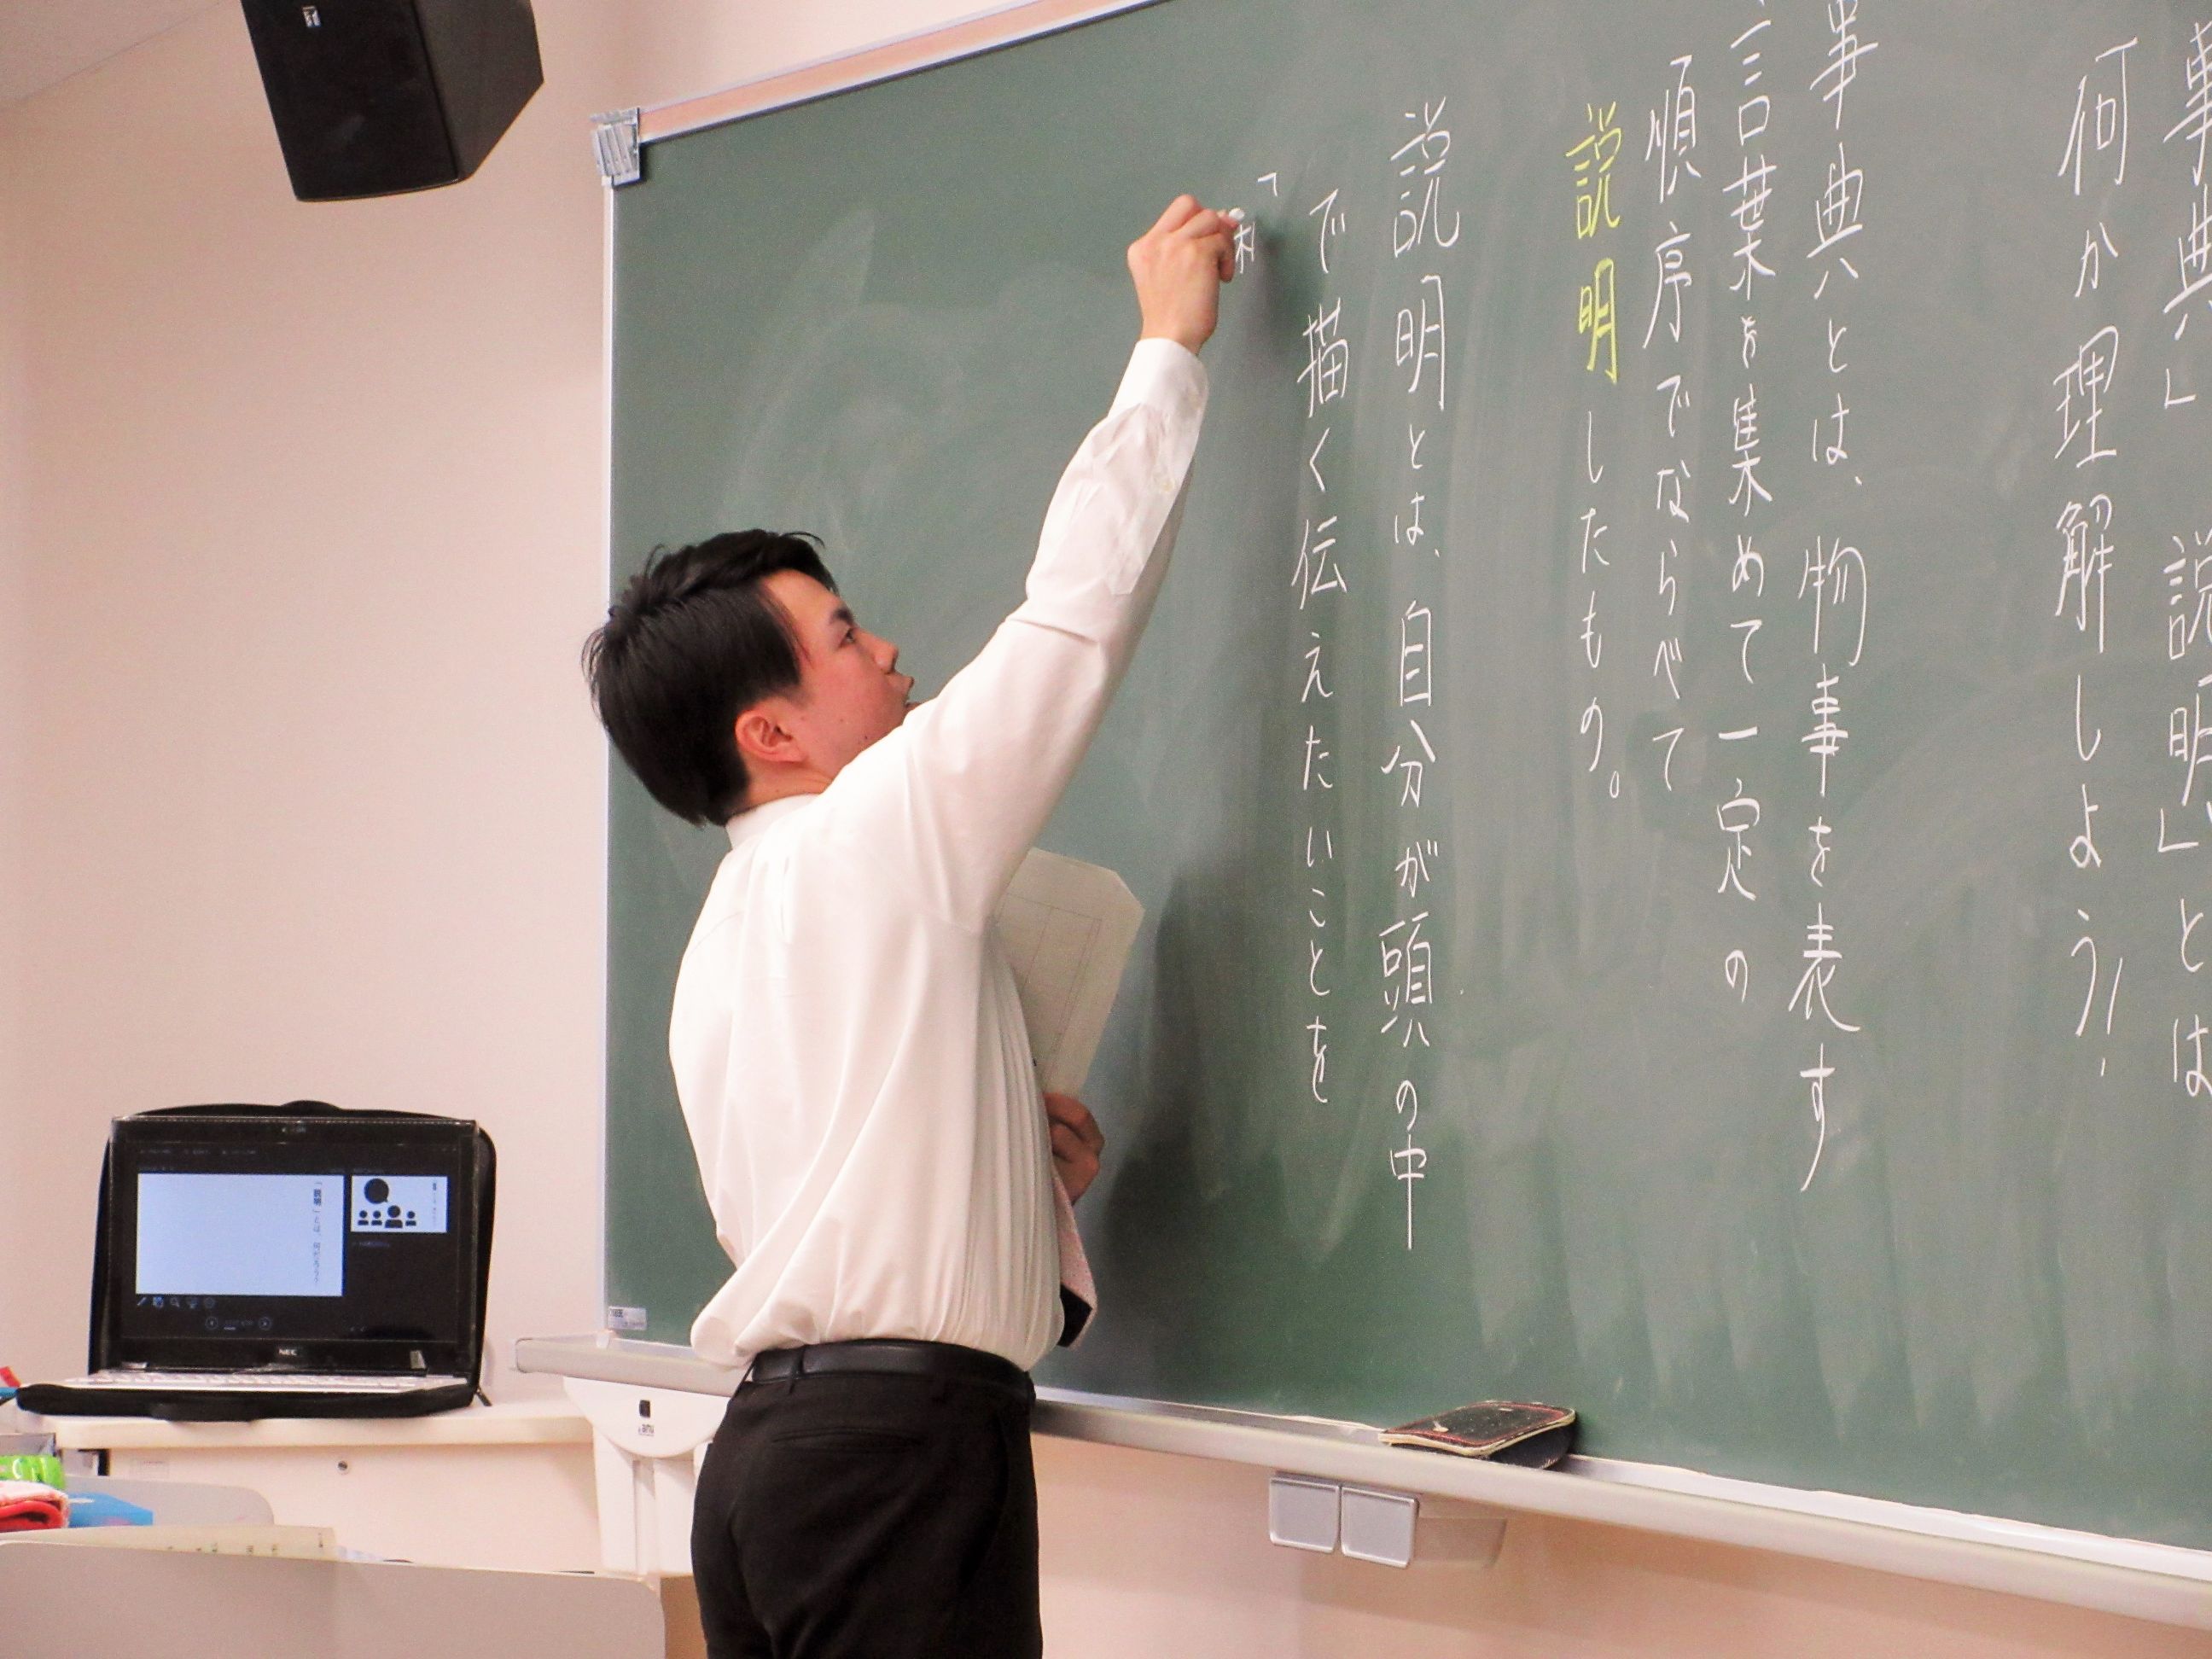 事典」「説明」とは
何か理解しよう！
事典とは、物事を表す
言葉を集めて一定の
順序でならべて
説明したもの。
説明とは、自分が頭の中
で描く伝えたいことを
「
「説明」とは、何だろう？
NEC